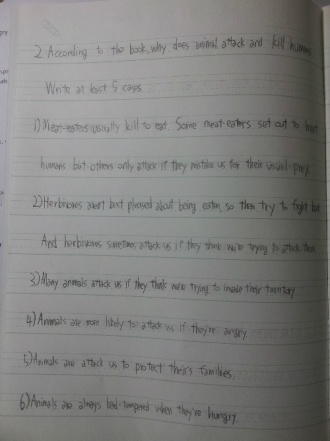 2. According to the book, why does animal attack and kill humans
Write at least 5 caps.
1) Meat-eaters usually kill to eat. Some meat-eaters set out to hunt
humans but others only attack if they mistake us for their usual prey.
2) Herbivores aren't best pleased about being eaten, so then try to fight but
And herbivores sometimes attack us if they think we're trying to attack them
3) Many animals attack us if they think we're trying to invade their territory
4) Animals are more likely to attack us if they're angry.
5) Animals are attack us to protect their's families.
6) Animals are always bad-tempered when they're hungry.